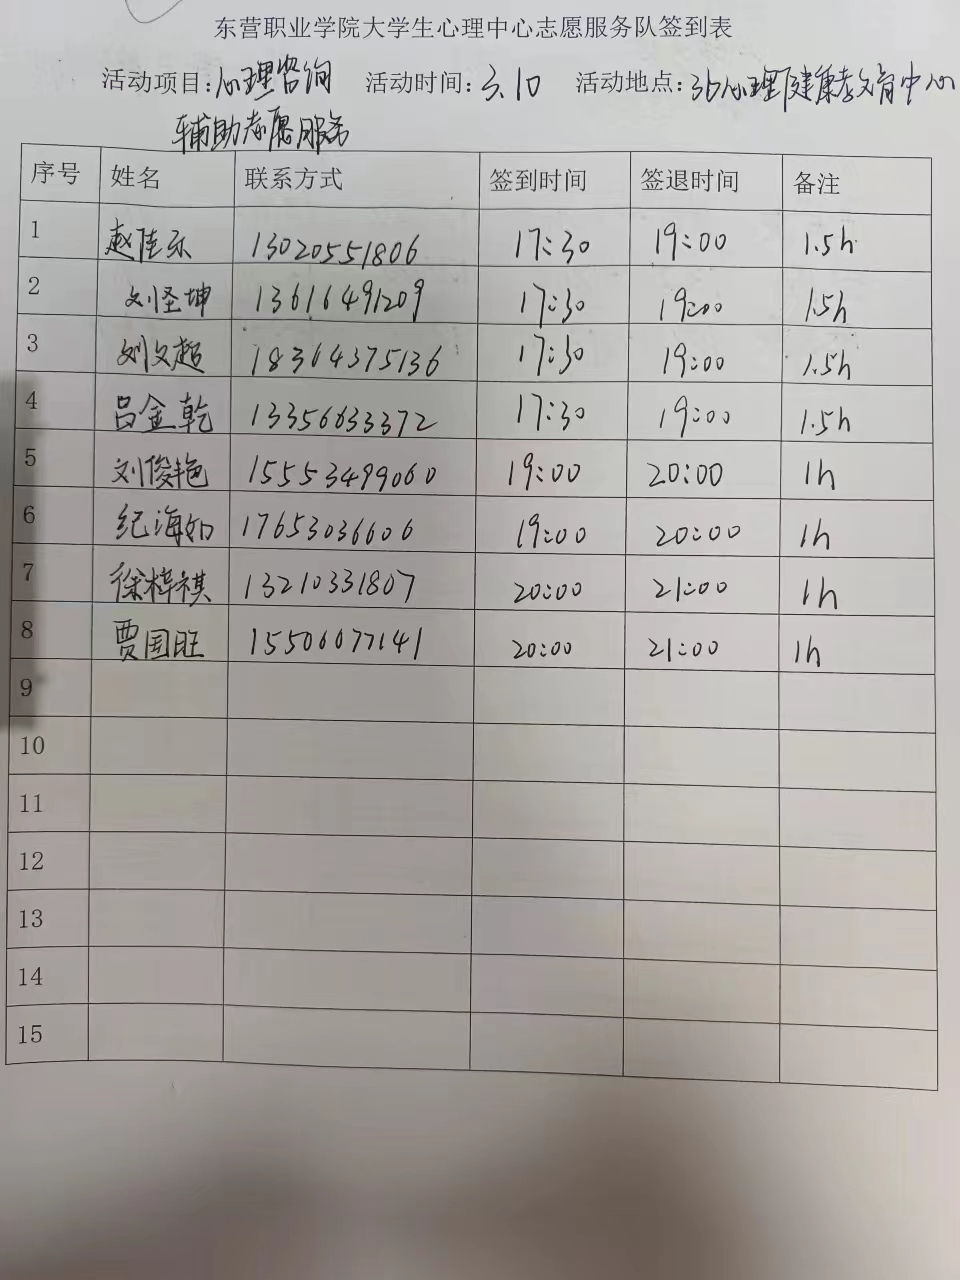 东营职业学院大学生心理中心志愿服务队签到表
活动项目：心理咨询 活动时间：3.10 活动地点：3b心理健康教育中心
辅助志愿服务
序号 姓名 联系方式 签到时间 签退时间 备注
1 赵佳乐 13020551806 17:30 19:00 1.5h
2 刘圣坤 13616491209 17:30 19:00 1.5h
3 刘文超 18364375136 17:30 19:00 1.5h
4 吕金乾 13356633372 17:30 19:00 1.5h
5 刘俊艳 15553499060 19:00 20:00 1h
6 纪海如 17653036606 19:00 20:00 1h
7 徐梓祺 13210331807 20:00 21:00 1h
8 贾国旺 15506077141 20:00 21:00 1h
9
10
11
12
13
14
15